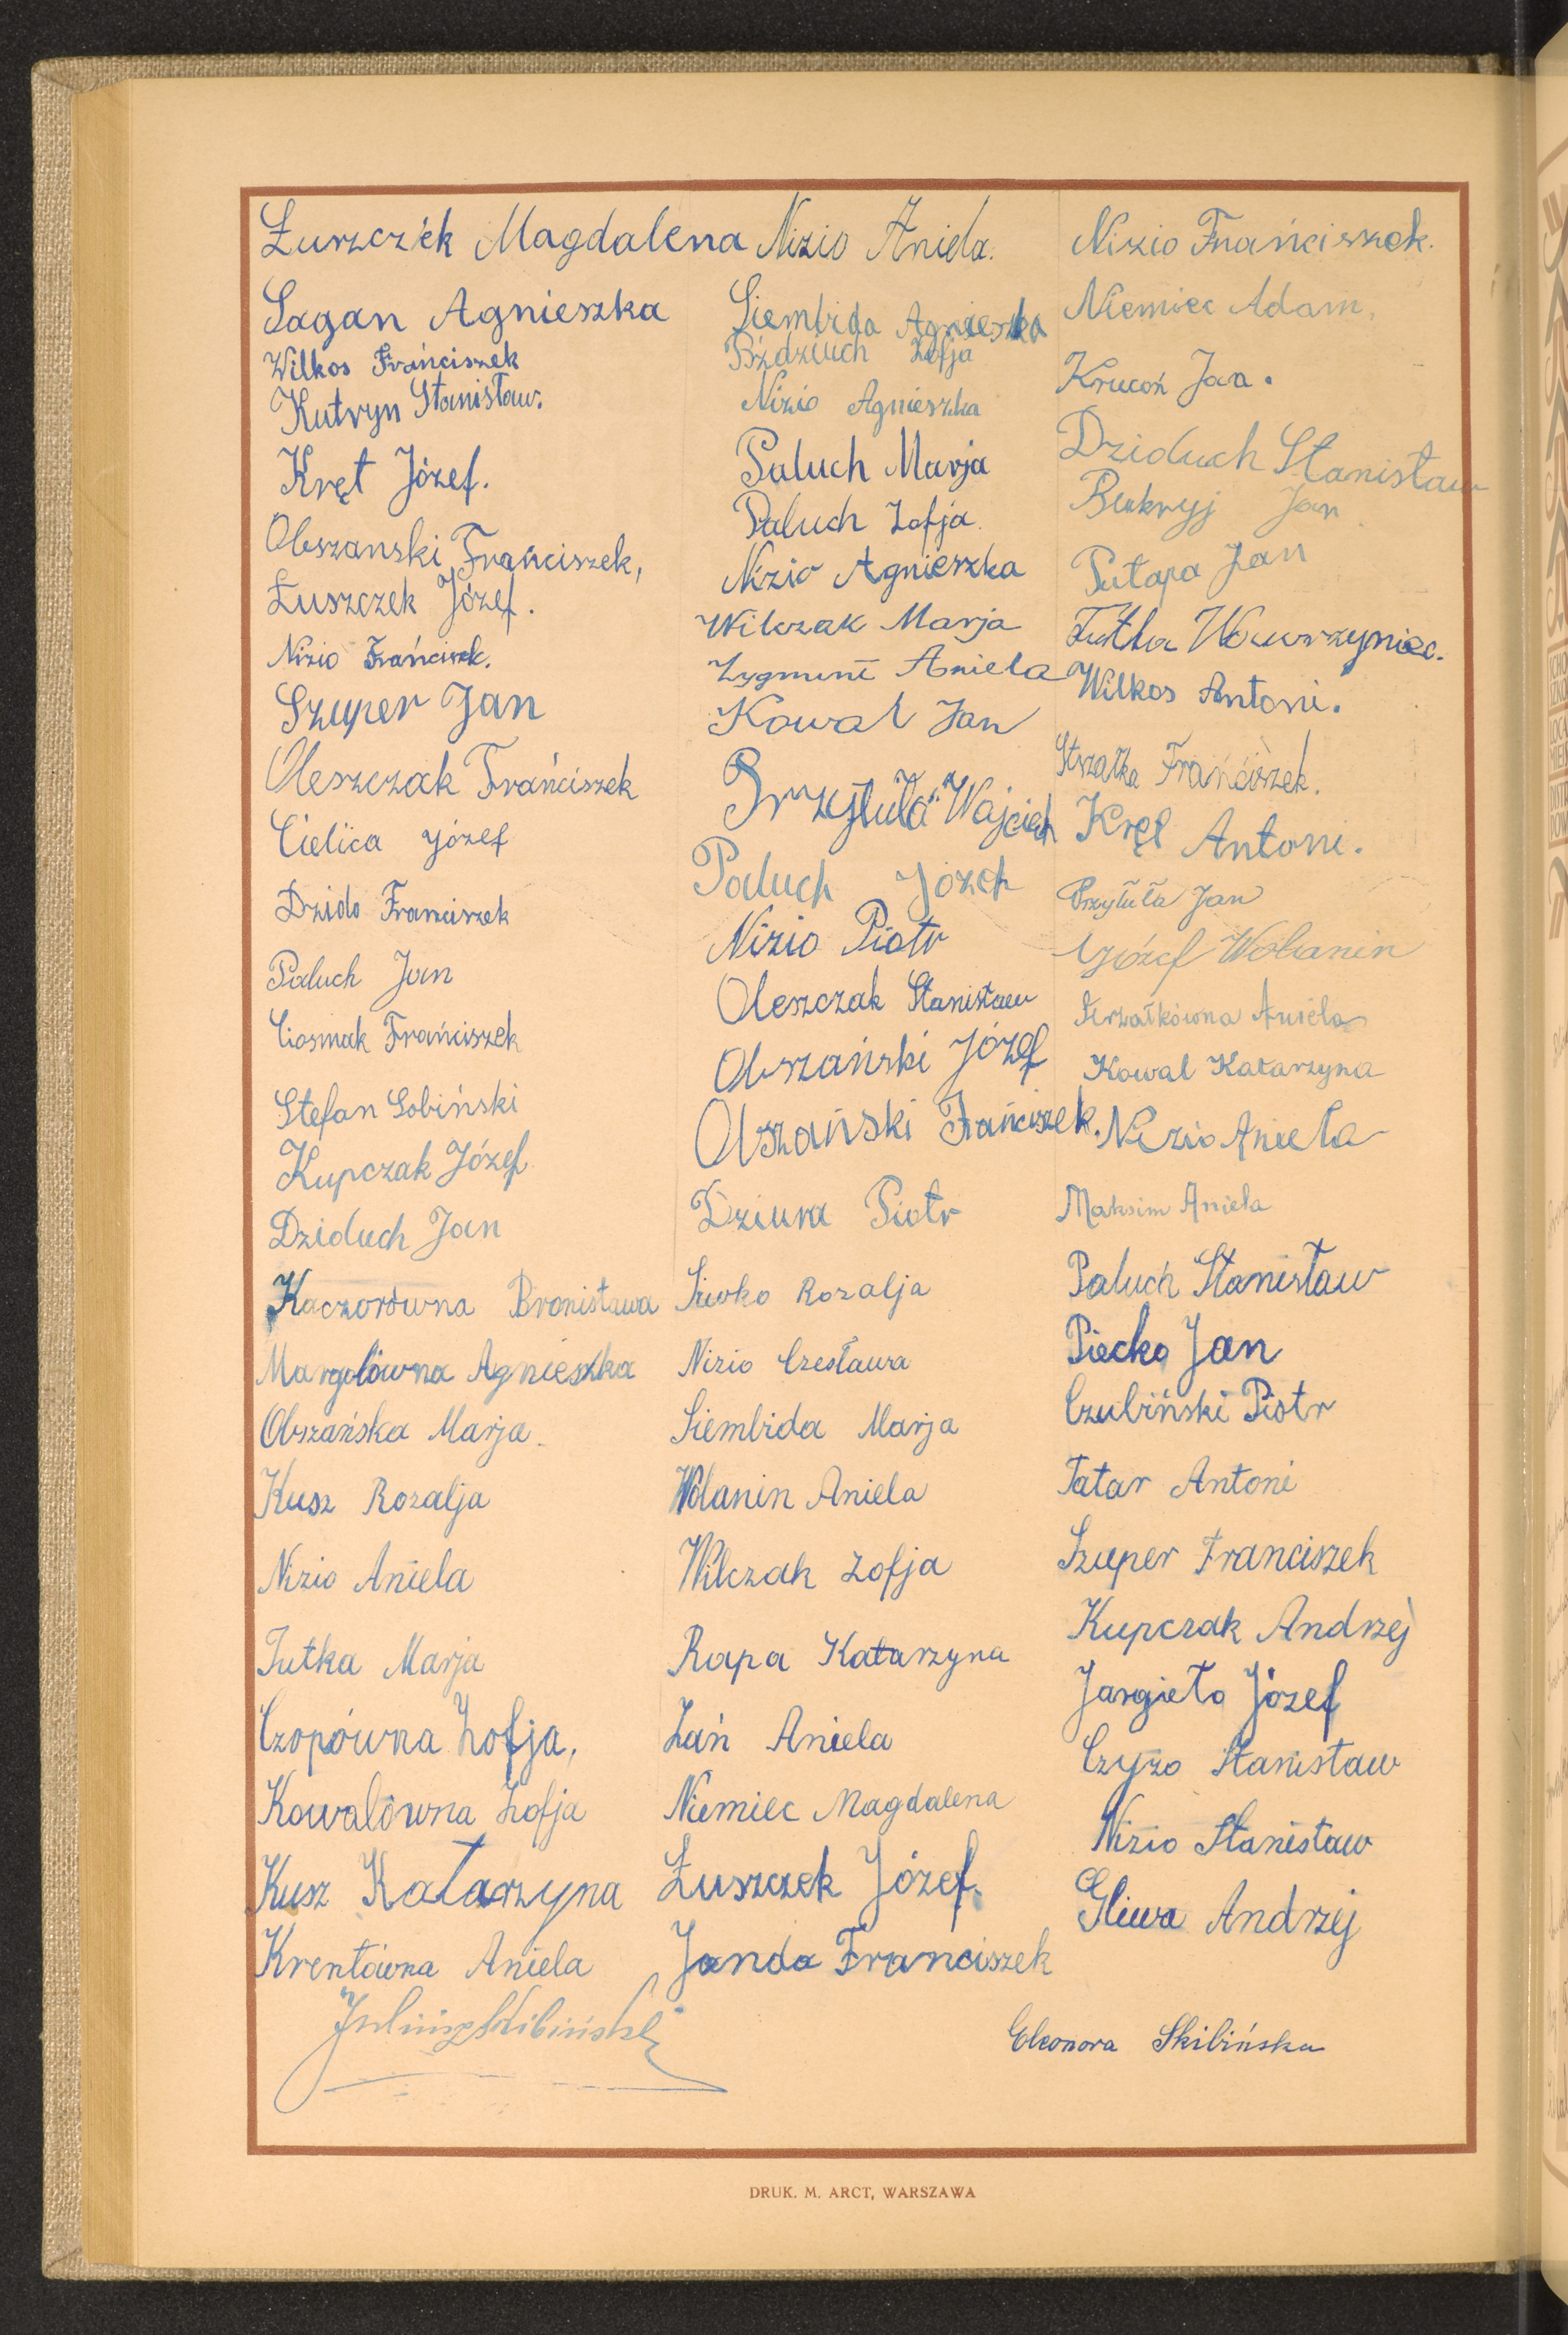 Łuszczek Magdalena
Sagan Agnieszka
Wilkos Frańciszek
Kutryn Stanisław.
Kręt Józef.
Obszanski Frańciszek,
Łuszczek Józef.
Nizio Frańciszek.
Szuper Jan
Oleszczak Frańciszek
Cielica Józef
Dzido Franciszek
Paluch Jan
Ciosmak Frańciszek
Stefan Sobiński
Kupczak Józef
Dziduch Jan
Kaczorówna Bronisława
Margolówna Agnieszka
Obszańska Marja.
Kusz Rozalja
Nizio Aniela
Tutka Marja
Czopówna Zofja,
Kowalówna Zofja
Kusz Katarzyna
Krentówna Aniela
Juliusz Skibiński
Nizio Aniela.
Siembida Agnieszka
Bździuch Zofja
Nizio Agnieszka
Paluch Marja
Paluch Zofja.
Nizio Agnieszka
Wilczak Marja
Zygmunt Aniela
Kowal Jan
Przytuła Wojciech
Paluch Józef
Nizio Piotr
Oleszczak Stanisław
Obszański Józef
Obszański Frańciszek.
Dziura Piotr
Siwko Rozalja
Nizio Czesława
Siembida Marja
Wolanin Aniela
Wilczak Zofja
Rapa Katarzyna
Zań Aniela
Niemiec Magdalena
Łuszczek Józef.
Janda Franciszek
Nizio Frańciszek.
Niemiec Adam,
Krucoń Jan.
Dziduch Stanisław
Bukryj Jan
Putapa Jan
Tutka Wawrzyniec.
Wilkos Antoni.
Strzałka Frańciszek.
Kręt Antoni.
Przytuła Jan
Józef Wolanin
Strzałkówna Aniela
Kowal Katarzyna
Nizio Aniela
Maksim Aniela
Paluch Stanisław
Piecko Jan
Czubiński Piotr
Tatar Antoni
Szuper Franciszek
Kupczak Andrzej
Jargieło Józef
Czyżo Stanisław
Nizio Stanisław
Gliwa Andrzej
Eleonora Skibińska
DRUK. M. ARCT, WARSZAWA